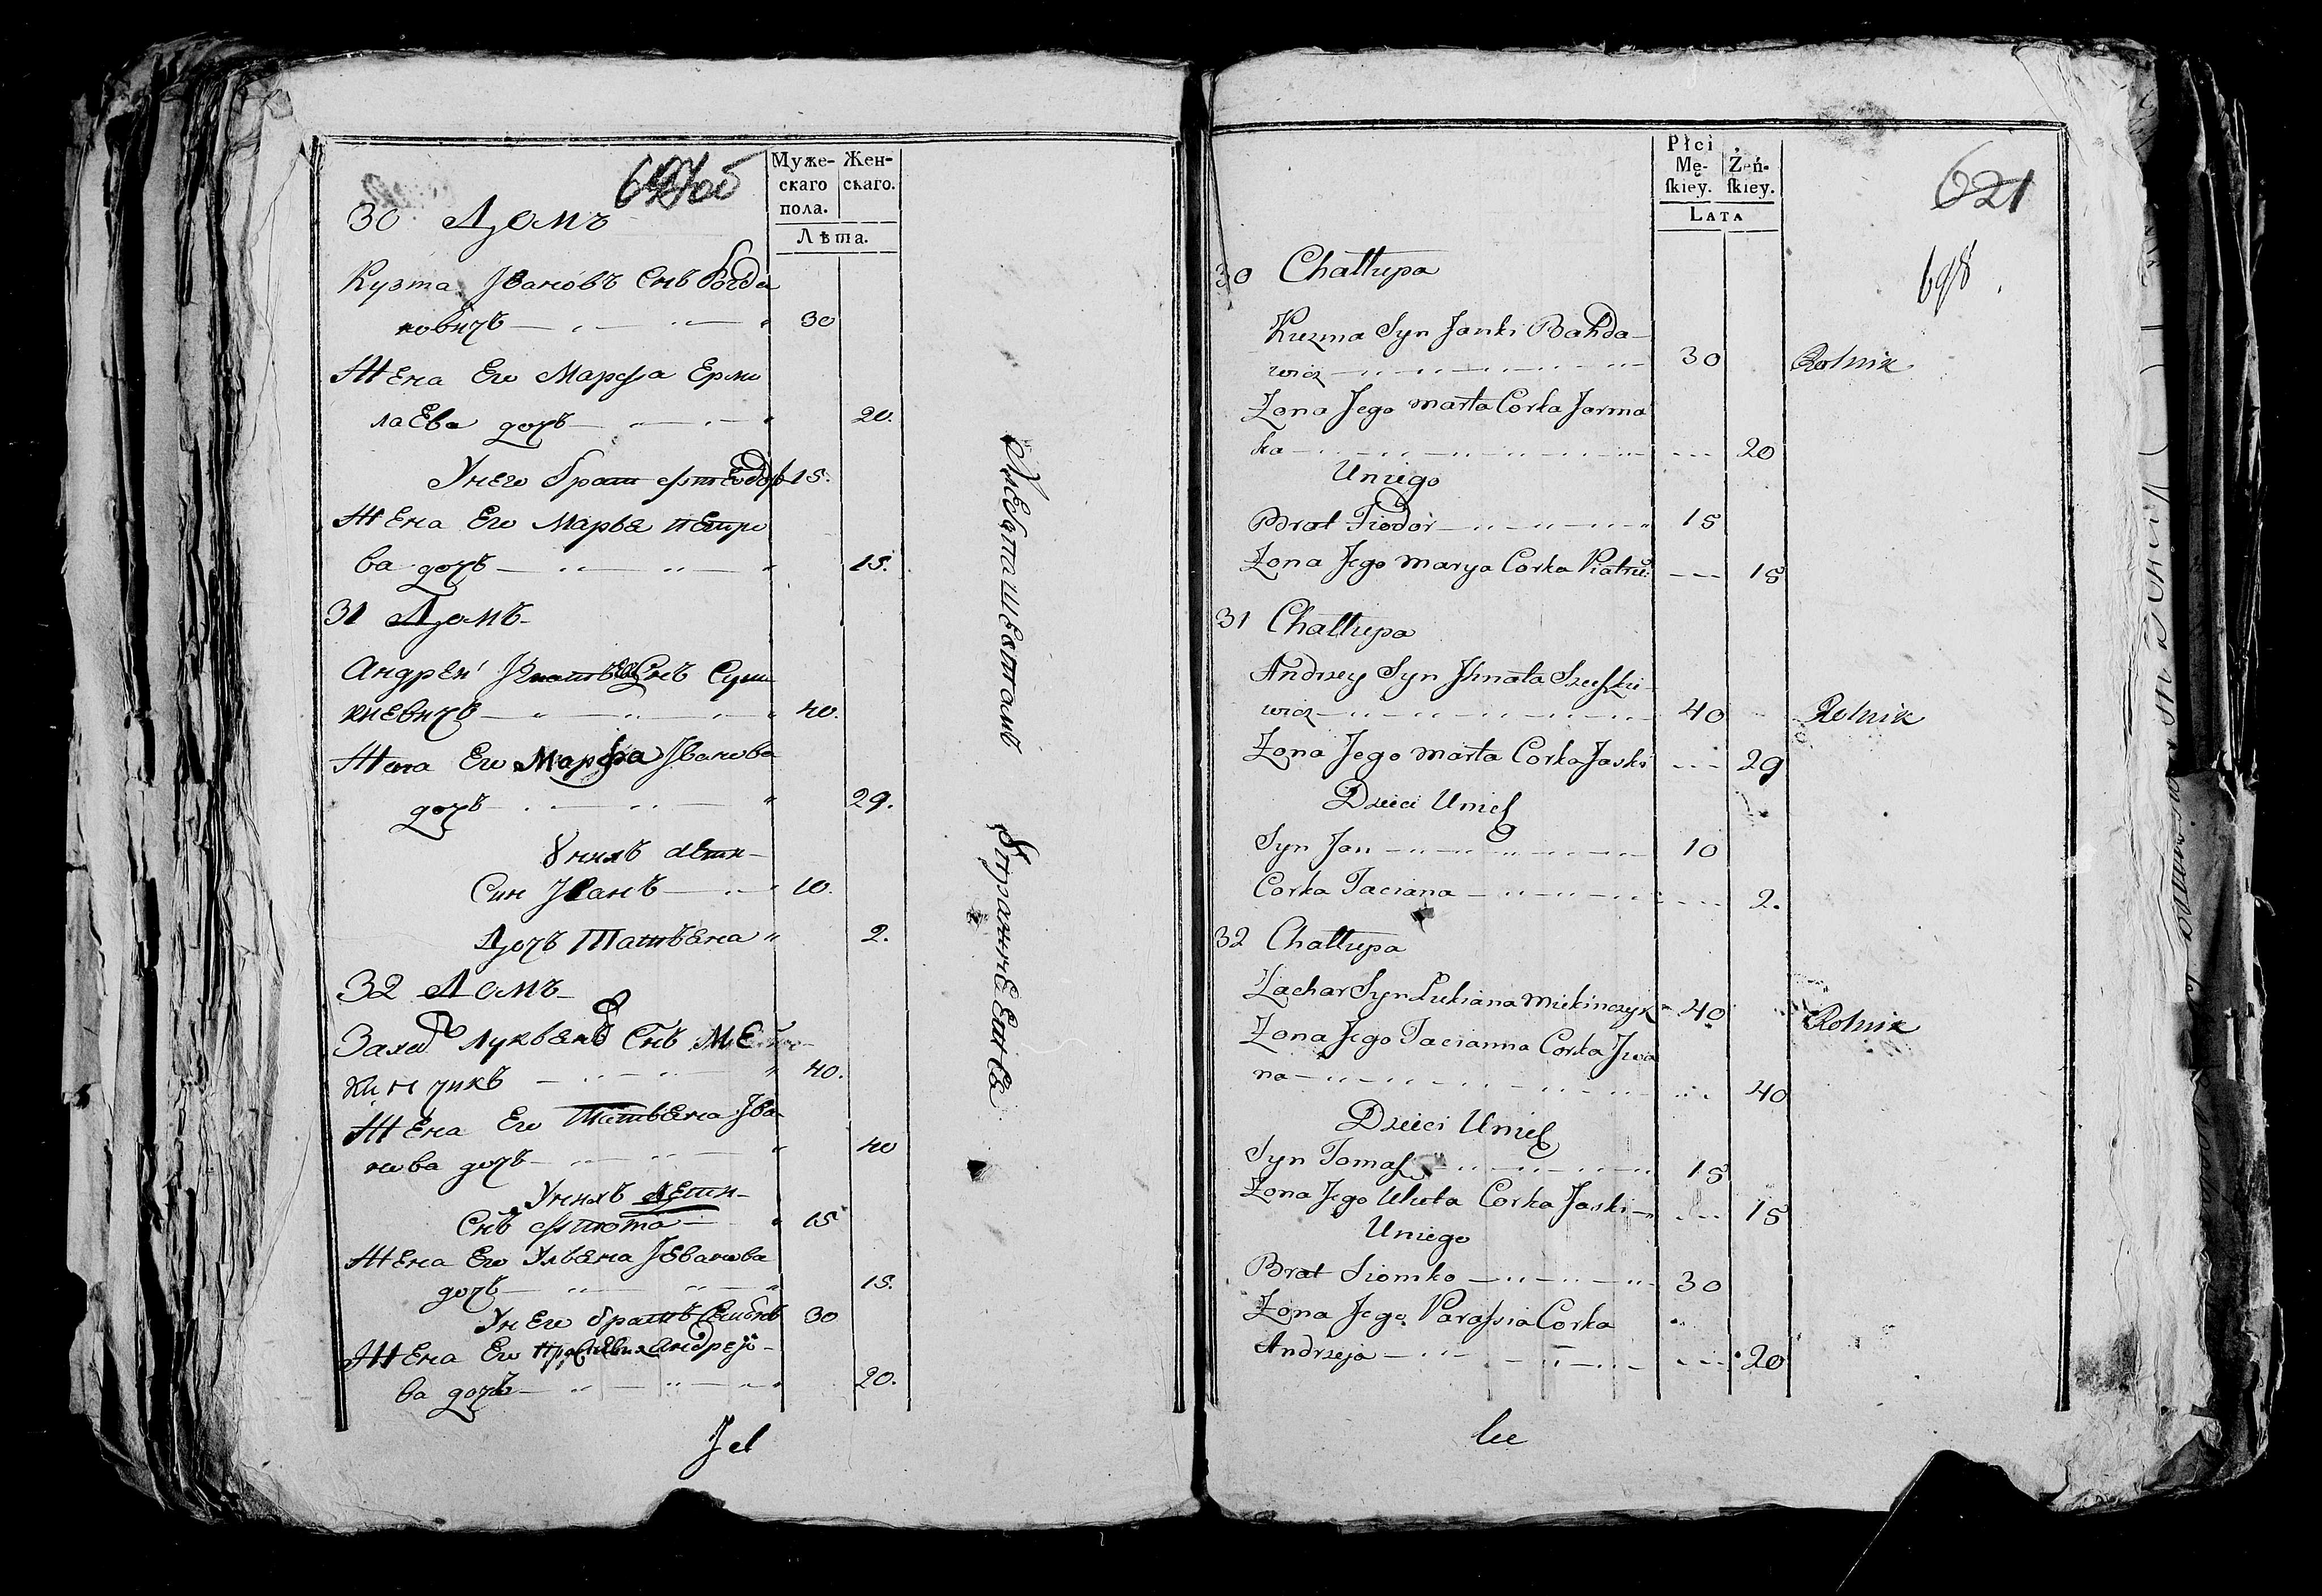 Муже-
скаго
пола.
Жен-
скаго.
Лѣта.
30 Домъ
Кузма Ивановъ Снъ Богда
новичъ 30
Жена Его Марфа Ермо
лаева дочь 20.
Унего братъ Фтеодоръ 15.
Жена Его Марья Петро
ва дочь 15.
31 Домъ
Андрей Игнатьевъ Снъ Суш
киевичъ 40.
Жена Его Марфа Иванова
дочь 29.
Унихъ дети
Син Иванъ 10.
Дочь Татьяна 2.
32 Домъ
Захар Лукьянъ Снъ Ме
кинчикъ 40.
Жена Его Татьяна Ива
нова дочь 40
Унихъ дети
Снъ 15
Жена Его Ульяна Иванова
дочь 15.
Унего братъ Семенъ 30
Жена Его Андреє
ва дочь 20.
Хлебопашествомъ
Jel
Płci
Mę-
ſkiey.
Żeń-
ſkiey.
LATA
621
698
30 Chałłupa
Kuzma Syn Janki Bahda-
wicz 30 Rolnik
Zona Jego Marta Corka Jarmo
ka 20
Uniego
Brat Fiodor 15
Zona Jego Marya Corka Piatru 15
31 Chałłupa
Andrzey Syn Jhnata Szuſzki-
wicz 40 Rolnik
Zona Jego Marta Corka Jaski 29
Dzieci Unich
Syn Jan 10
Corka Taciana 2.
32 Chałłupa
Zachar Syn Lukiana Miekinczyk 40 Rolnik
Zona Jego Tacianna Corka Jwa
na 40
Dzieci Unich
Syn Tomaſz 15
Zona Jego Uluta Corka Jaski 15
Uniego
Brat Siomko 30
Zona Jego Paraſsia Corka
Andrzeja 20